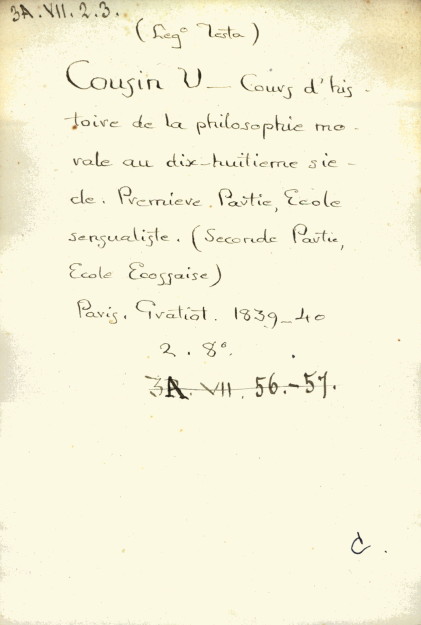 3A. VII. 2. 3.
(Leg° Testa)
Cousin V — Cours d'his-
toire de la philosophie mo-
rale au dix-huitieme sie-
cle. Premiere Partie, Ecole
sensualiste. (Seconde Partie,
Ecole Ecossaise)
Paris. Gratiot. 1839-40
2. 8°.
3A. VII. 56.-57.
C.